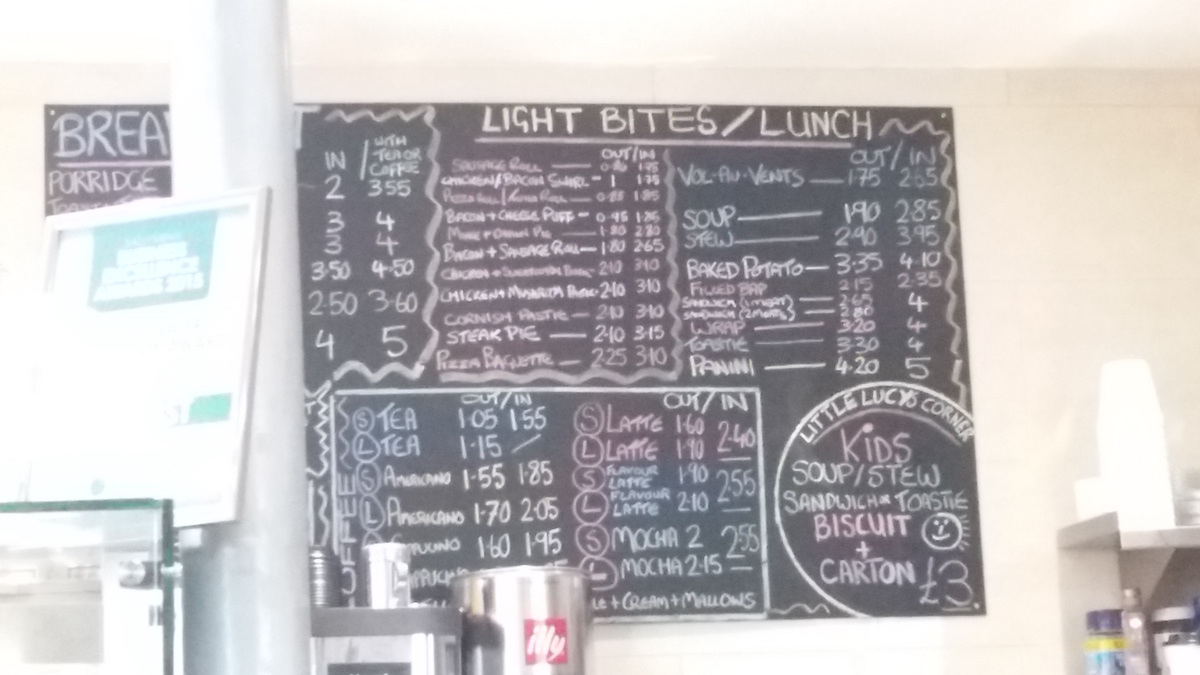 BREA
PORRIDGE
IN / WITH TEA OR COFFEE
2 355
3 4
3 4
3·50 4·50
2·50 3·60
4 5
LIGHT BITES/LUNCH
OUT/IN
SAUSAGE ROLL 1·75
CHICKEN/BACON SWIRL 1 1·75
0·85 1·85
BACON + CHEESE PUFF 0·95 1·85
1·80 2·80
BACON + SAUSAGE ROLL 1·80 2·65
2·10 3·10
CHICKEN + MUSHROOM 2·10 3·10
CORNISH PASTIE 2·10 3·10
STEAK PIE 2·10 3·15
PIZZA BAGUETTE 2·25 3·10
OUT/IN
VOL-AU-VENTS 1·75 2·65
SOUP 1·90 2·85
STEW 2·90 3·95
BAKED POTATO 3·35 4·10
FILLED BAP 2·15 2·35
SANDWICH (1 MEAT) 2·65 4
SANDWICH (2 MEATS) 2·80
WRAP 3·20 4
TOASTIE 3·30 4
PANINI 4·20 5
OUT/IN
S TEA 1·05 1·55
L TEA 1·15 /
S AMERICANO 1·55 1·85
L AMERICANO 1·70 2·05
1·60 1·95
OUT/IN
S LATTE 1·60 2·40
L LATTE 1·90
S FLAVOUR LATTE 1·90 2·55
L FLAVOUR LATTE 2·10
S MOCHA 2 2·55
L MOCHA 2·15
+ CREAM + MALLOWS
LITTLE LUCYS CORNER
KiDS
SOUP/STEW
SANDWICH OR TOASTIE
BISCUIT
+
CARTON £3
illy